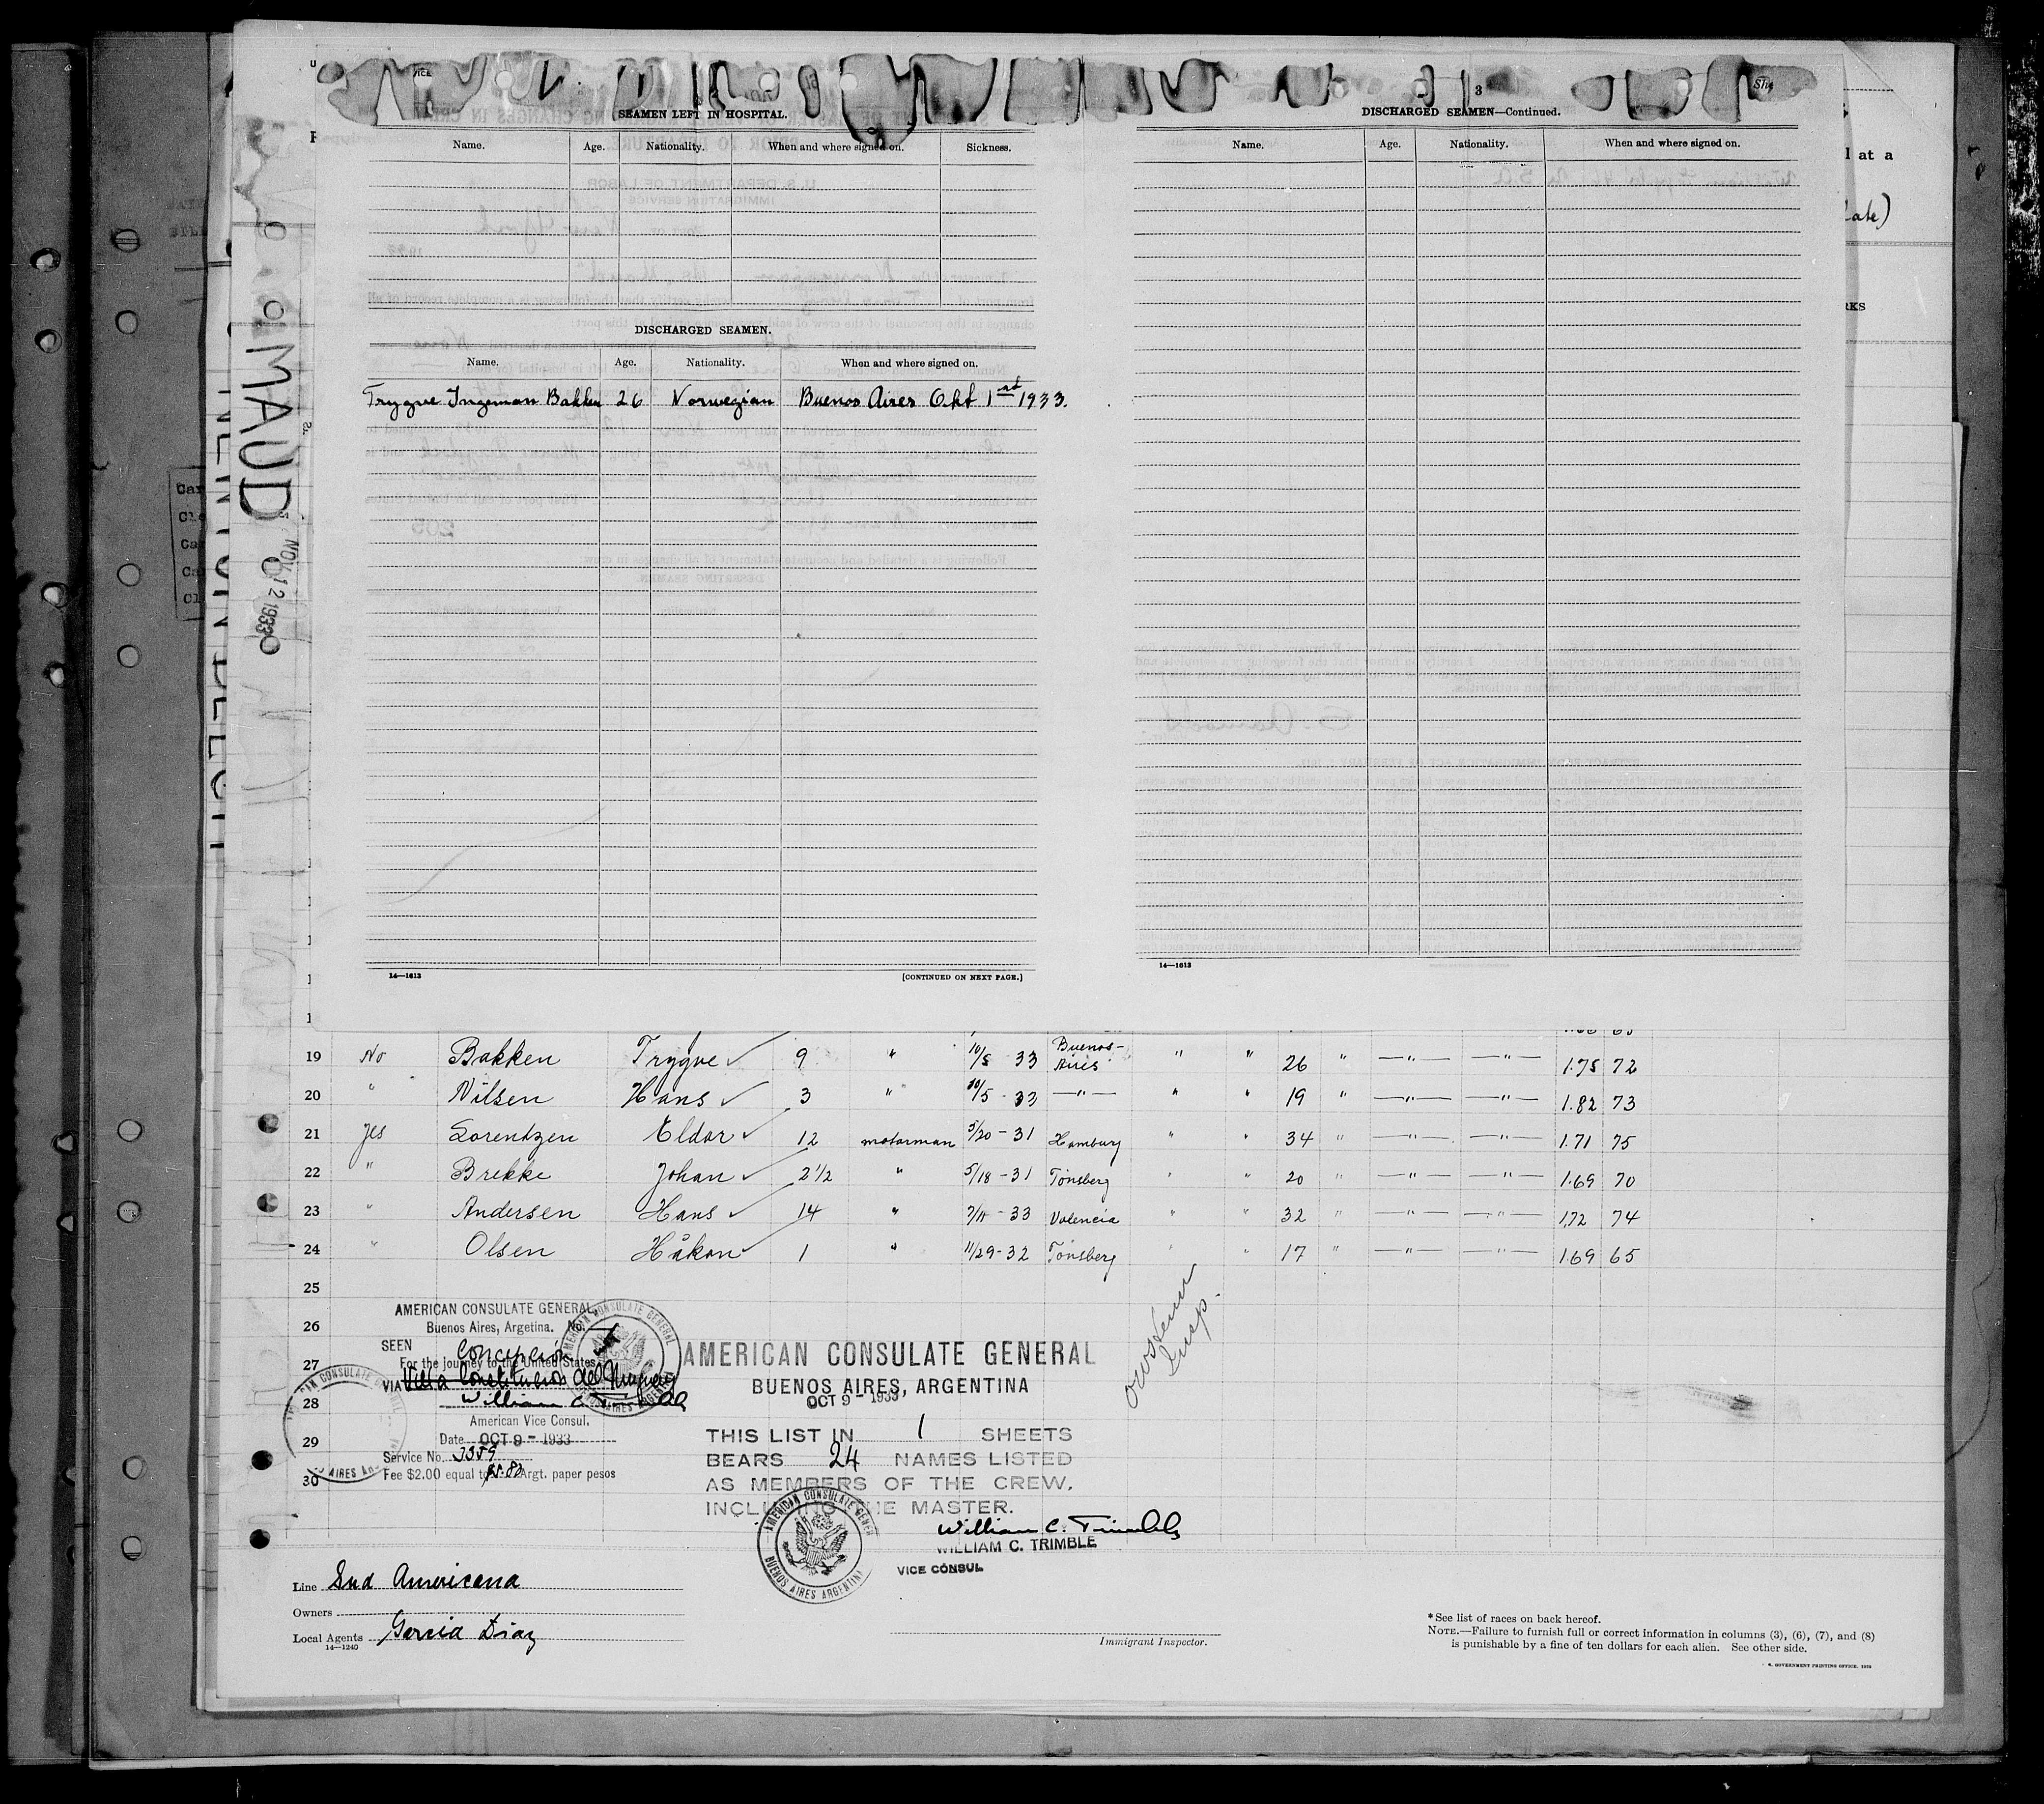 3
She
SEAMEN LEFT IN HOSPITAL.
Name. Age. Nationality. When and where signed on. Sickness.
DISCHARGED SEAMEN.
Name. Age. Nationality. When and where signed on.
Trygve Ingeman Bakken 26 Norwegian Buenos Aires Okt 1st 1933.
14—1613 [CONTINUED ON NEXT PAGE.]
DISCHARGED SEAMEN—Continued.
Name. Age. Nationality. When and where signed on.
14—1613
l at a
late)
RKS
MAUD
NOV 12 1933
19 No Bakken Trygve ✓ 9 " 10/5 33 Buenos-Aires " " 26 " —"— —"— 1.75 72
20 " Nilsen Hans ✓ 3 " 10/5 - 33 —"— " " 19 " —"— —"— 1.82 73
21 Yes Lorentzen Eldor ✓ 12 motorman 5/20 - 31 Hamburg " " 34 " —"— —"— 1.71 75
22 " Brekke Johan ✓ 2 1/2 " 5/18 - 31 Tönsberg " " 20 " —"— —"— 1.69 70
23 " Andersen Hans ✓ 14 " 7/11 - 33 Valencia " " 32 " —"— —"— 1.72 74
24 " Olsen Håkon ✓ 1 " 11/29 - 32 Tönsberg " " 17 " —"— —"— 1.69 65
25
26
27
28
29
30
AMERICAN CONSULATE GENERAL
Buenos Aires, Argetina. No.
SEEN
Concepcion
For the journey to the United States
VIA Villa Constitucion del Uruguay
William C. Trimble
American Vice Consul.
Date OCT 9 - 1933
Service No. 3359
Fee $2.00 equal to Argt. paper pesos
AMERICAN CONSULATE GENERAL
BUENOS AIRES, ARGENTINA
OCT 9 - 1933
THIS LIST IN 1 SHEETS
BEARS 24 NAMES LISTED
AS MEMBERS OF THE CREW,
INCLUDING THE MASTER.
William C. Trimble
WILLIAM C. TRIMBLE
VICE CONSUL
AMERICAN CONSULATE GENERAL
BUENOS AIRES ARGENTINA
Insp.
Line Sud Americana
Owners
Local Agents Garcia Diaz
14—1240
Immigrant Inspector.
* See list of races on back hereof.
NOTE.—Failure to furnish full or correct information in columns (3), (6), (7), and (8)
is punishable by a fine of ten dollars for each alien. See other side.